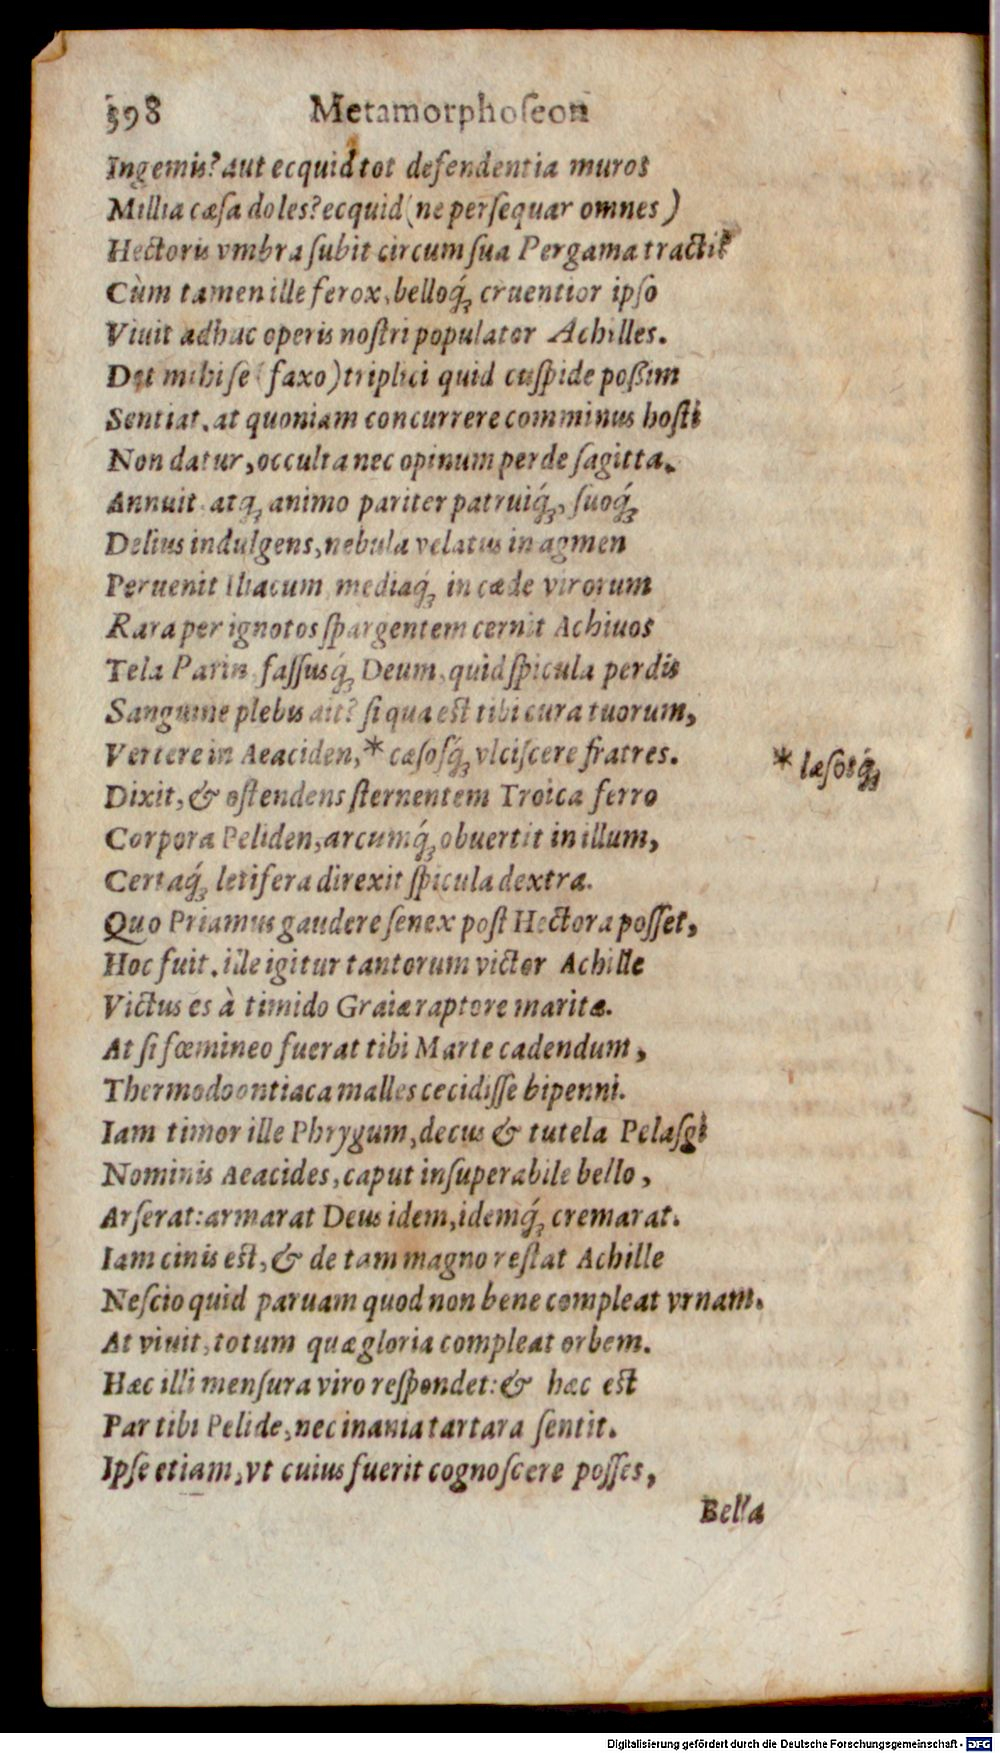 398 Metamorphoſeon
Ingemis? aut ecquid tot defendentia muros
Millia cæſa doles? ecquid (ne perſequar omnes)
Hectoris vmbra ſubit circum ſua Pergama tracti?
Cùm tamen ille ferox, belloq́ꝫ cruentior ipſo
Viuit adhuc operis noſtri populator Achilles.
Det mihi ſe (faxo) triplici quid cuſpide poßim
Sentiat. at quoniam concurrere comminus hoſti
Non datur, occulta nec opinum perde ſagitta.
Annuit. atqꝫ animo pariter patruiq́ꝫ, ſuoq́ꝫ
Delius indulgens, nebula velatus in agmen
Peruenit Iliacum, mediaq́ꝫ in cæde virorum
Rara per ignotos ſpargentem cernit Achiuos
Tela Parin, faſſusq́ꝫ Deum, quid ſpicula perdis
Sanguine plebis ait? ſi qua est tibi cura tuorum,
Vertere in Aeaciden, * cæſoſq́ꝫ vlciſcere fratres.
* læſosq́ꝫ
Dixit, & oſtendens ſternentem Troica ferro
Corpora Peliden, arcumq́ꝫ obuertit in illum,
Certaq́ꝫ letifera direxit ſpicula dextra.
Quo Priamus gaudere ſenex poſt Hectora poſſet,
Hoc fuit. ille igitur tantorum victor Achille
Victus es à timido Graiæ raptore maritæ.
At ſi fœmineo fuerat tibi Marte cadendum,
Thermodoontiaca malles cecidiſſe bipenni.
Iam timor ille Phrygum, decus & tutela Pelaſgi
Nominis Aeacides, caput inſuperabile bello,
Arſerat: armarat Deus idem, idemq́ꝫ cremarat.
Iam cinis est, & de tam magno reſtat Achille
Neſcio quid paruam quod non bene compleat vrnam.
At viuit, totum quæ gloria compleat orbem.
Hæc illi menſura viro reſpondet: & hæc est
Par tibi Pelide, nec inania tartara ſentit.
Ipſe etiam, vt cuius fuerit cognoſcere poſſes,
Bella
Digitalisierung gefördert durch die Deutsche Forschungsgemeinschaft - DFG